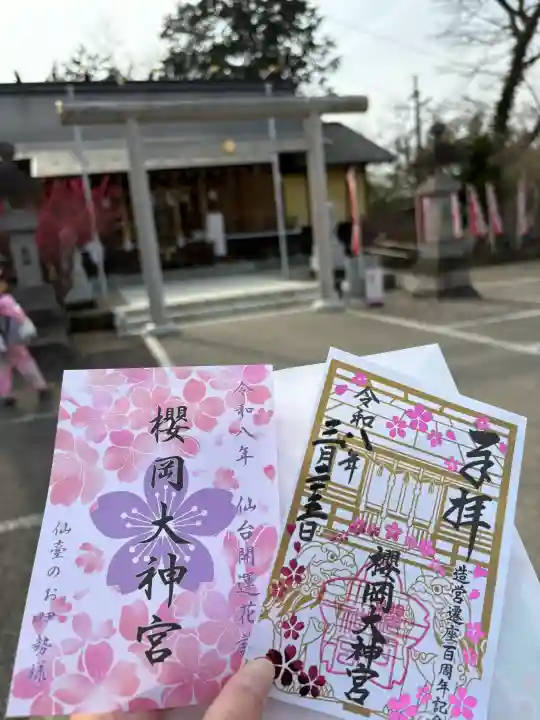 令和八年 仙台開運花
櫻岡大神宮
仙臺のお伊勢様
奉拝
造営遷座百周年記念
令和八年
三月二十三日
櫻岡大神宮